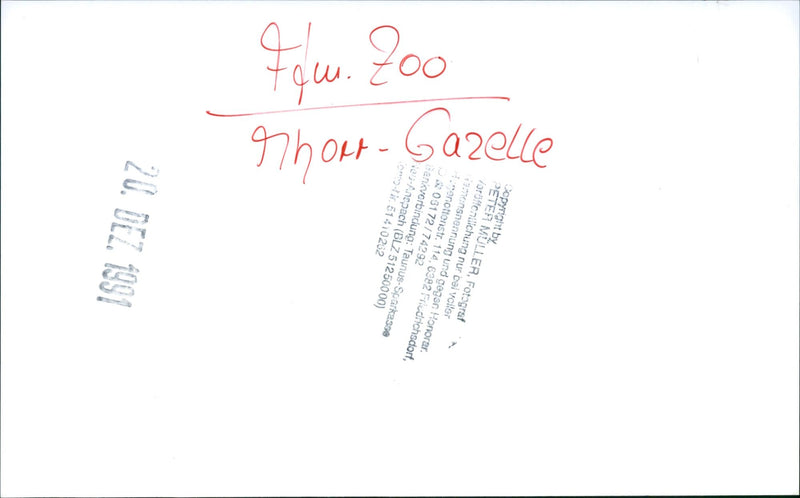 Ffm. Zoo
Mhorr-Gazelle
20. DEZ. 1991
Copyright by
PETER MÜLLER, Fotograf
Veröffentlichung nur bei voller
Namensnennung und gegen Honorar.
Hugenottenstr. 114, 6382 Friedrichsdorf,
06172/74292
Bankverbindung: Taunus-Sparkasse
Anspach (BLZ 51250000)
51410202